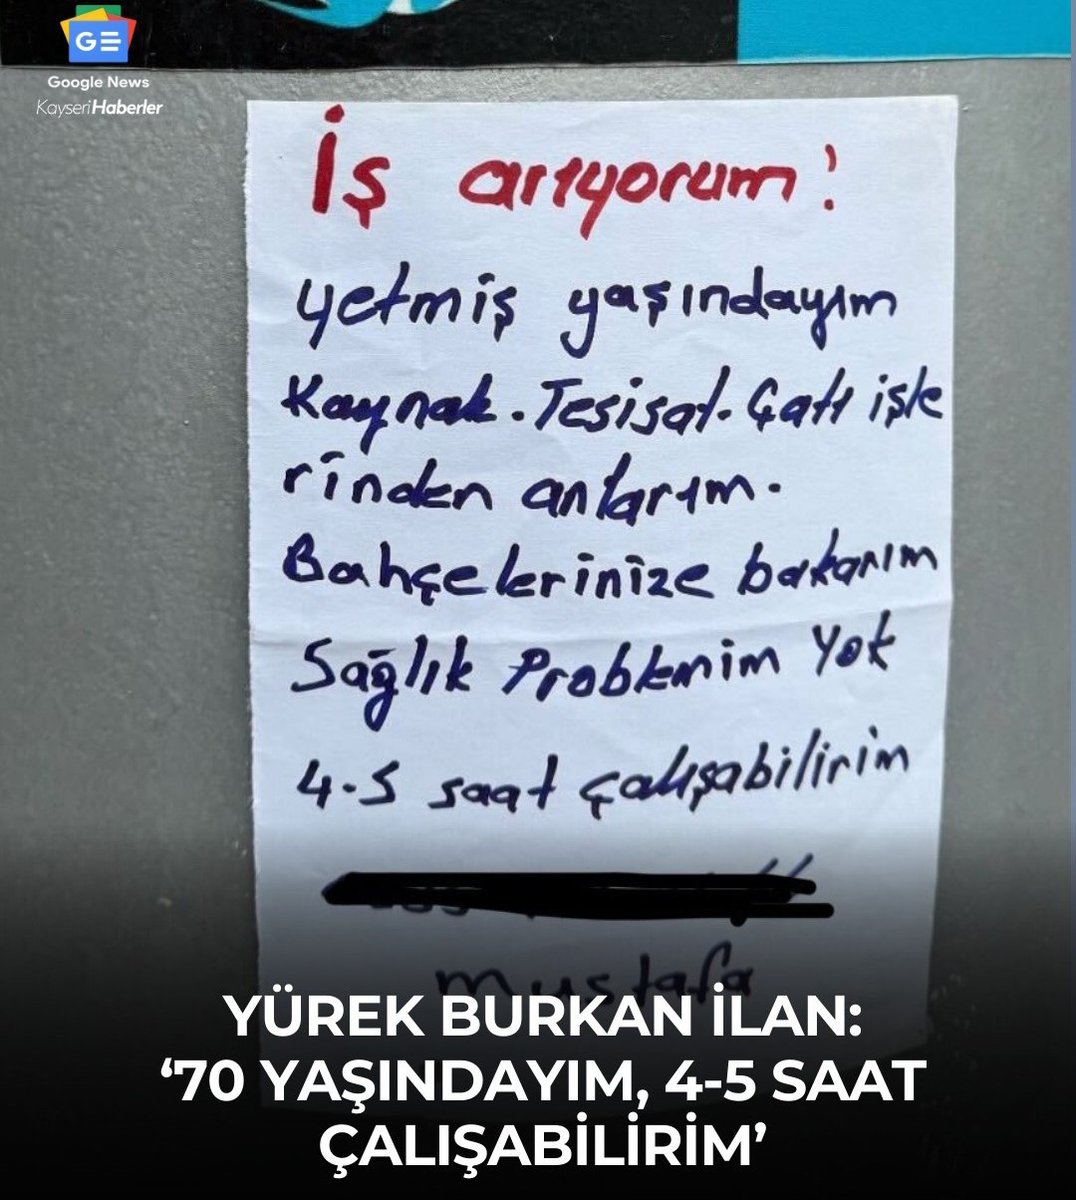 Google News
KayseriHaberler
İş arıyorum!
yetmiş yaşındayım
Kaynak. Tesisat. Çatı işle
rinden anlarım.
Bahçelerinize bakarım
Sağlık Problemim Yok
4-5 saat çalışabilirim
mustafa
YÜREK BURKAN İLAN:
‘70 YAŞINDAYIM, 4-5 SAAT
ÇALIŞABİLİRİM’